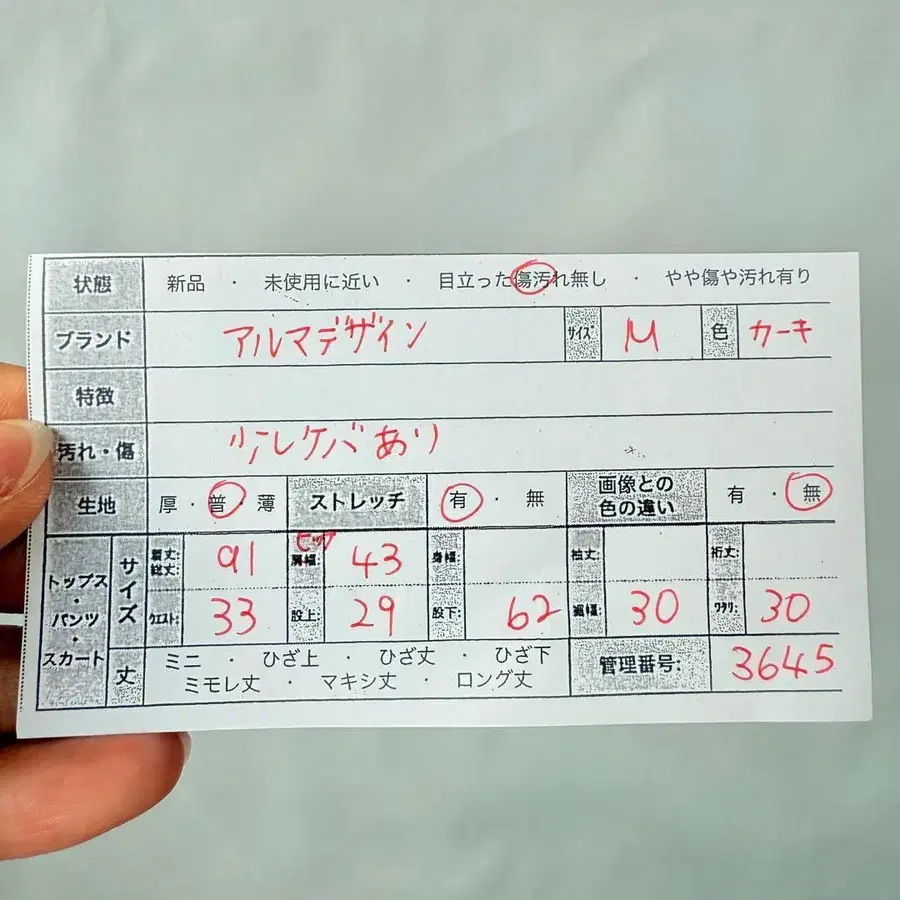 状態 新品 ・ 未使用に近い ・ 目立った傷汚れ無し ・ やや傷や汚れ有り
ブランド アルマデザイン サイズ M 色 カーキ
特徴
汚れ・傷 少しケバあり
生地 厚・普・薄 ストレッチ 有 ・ 無 画像との色の違い 有 ・ 無
トップス・パンツ・スカート サイズ 着丈:総丈: 91 ヒップ 肩幅: 43 身幅: 袖丈: 裄丈:
ウエスト: 33 股上: 29 股下: 62 裾幅: 30 ワタリ: 30
丈 ミニ ・ ひざ上 ・ ひざ丈 ・ ひざ下
ミモレ丈 ・ マキシ丈 ・ ロング丈
管理番号: 3645